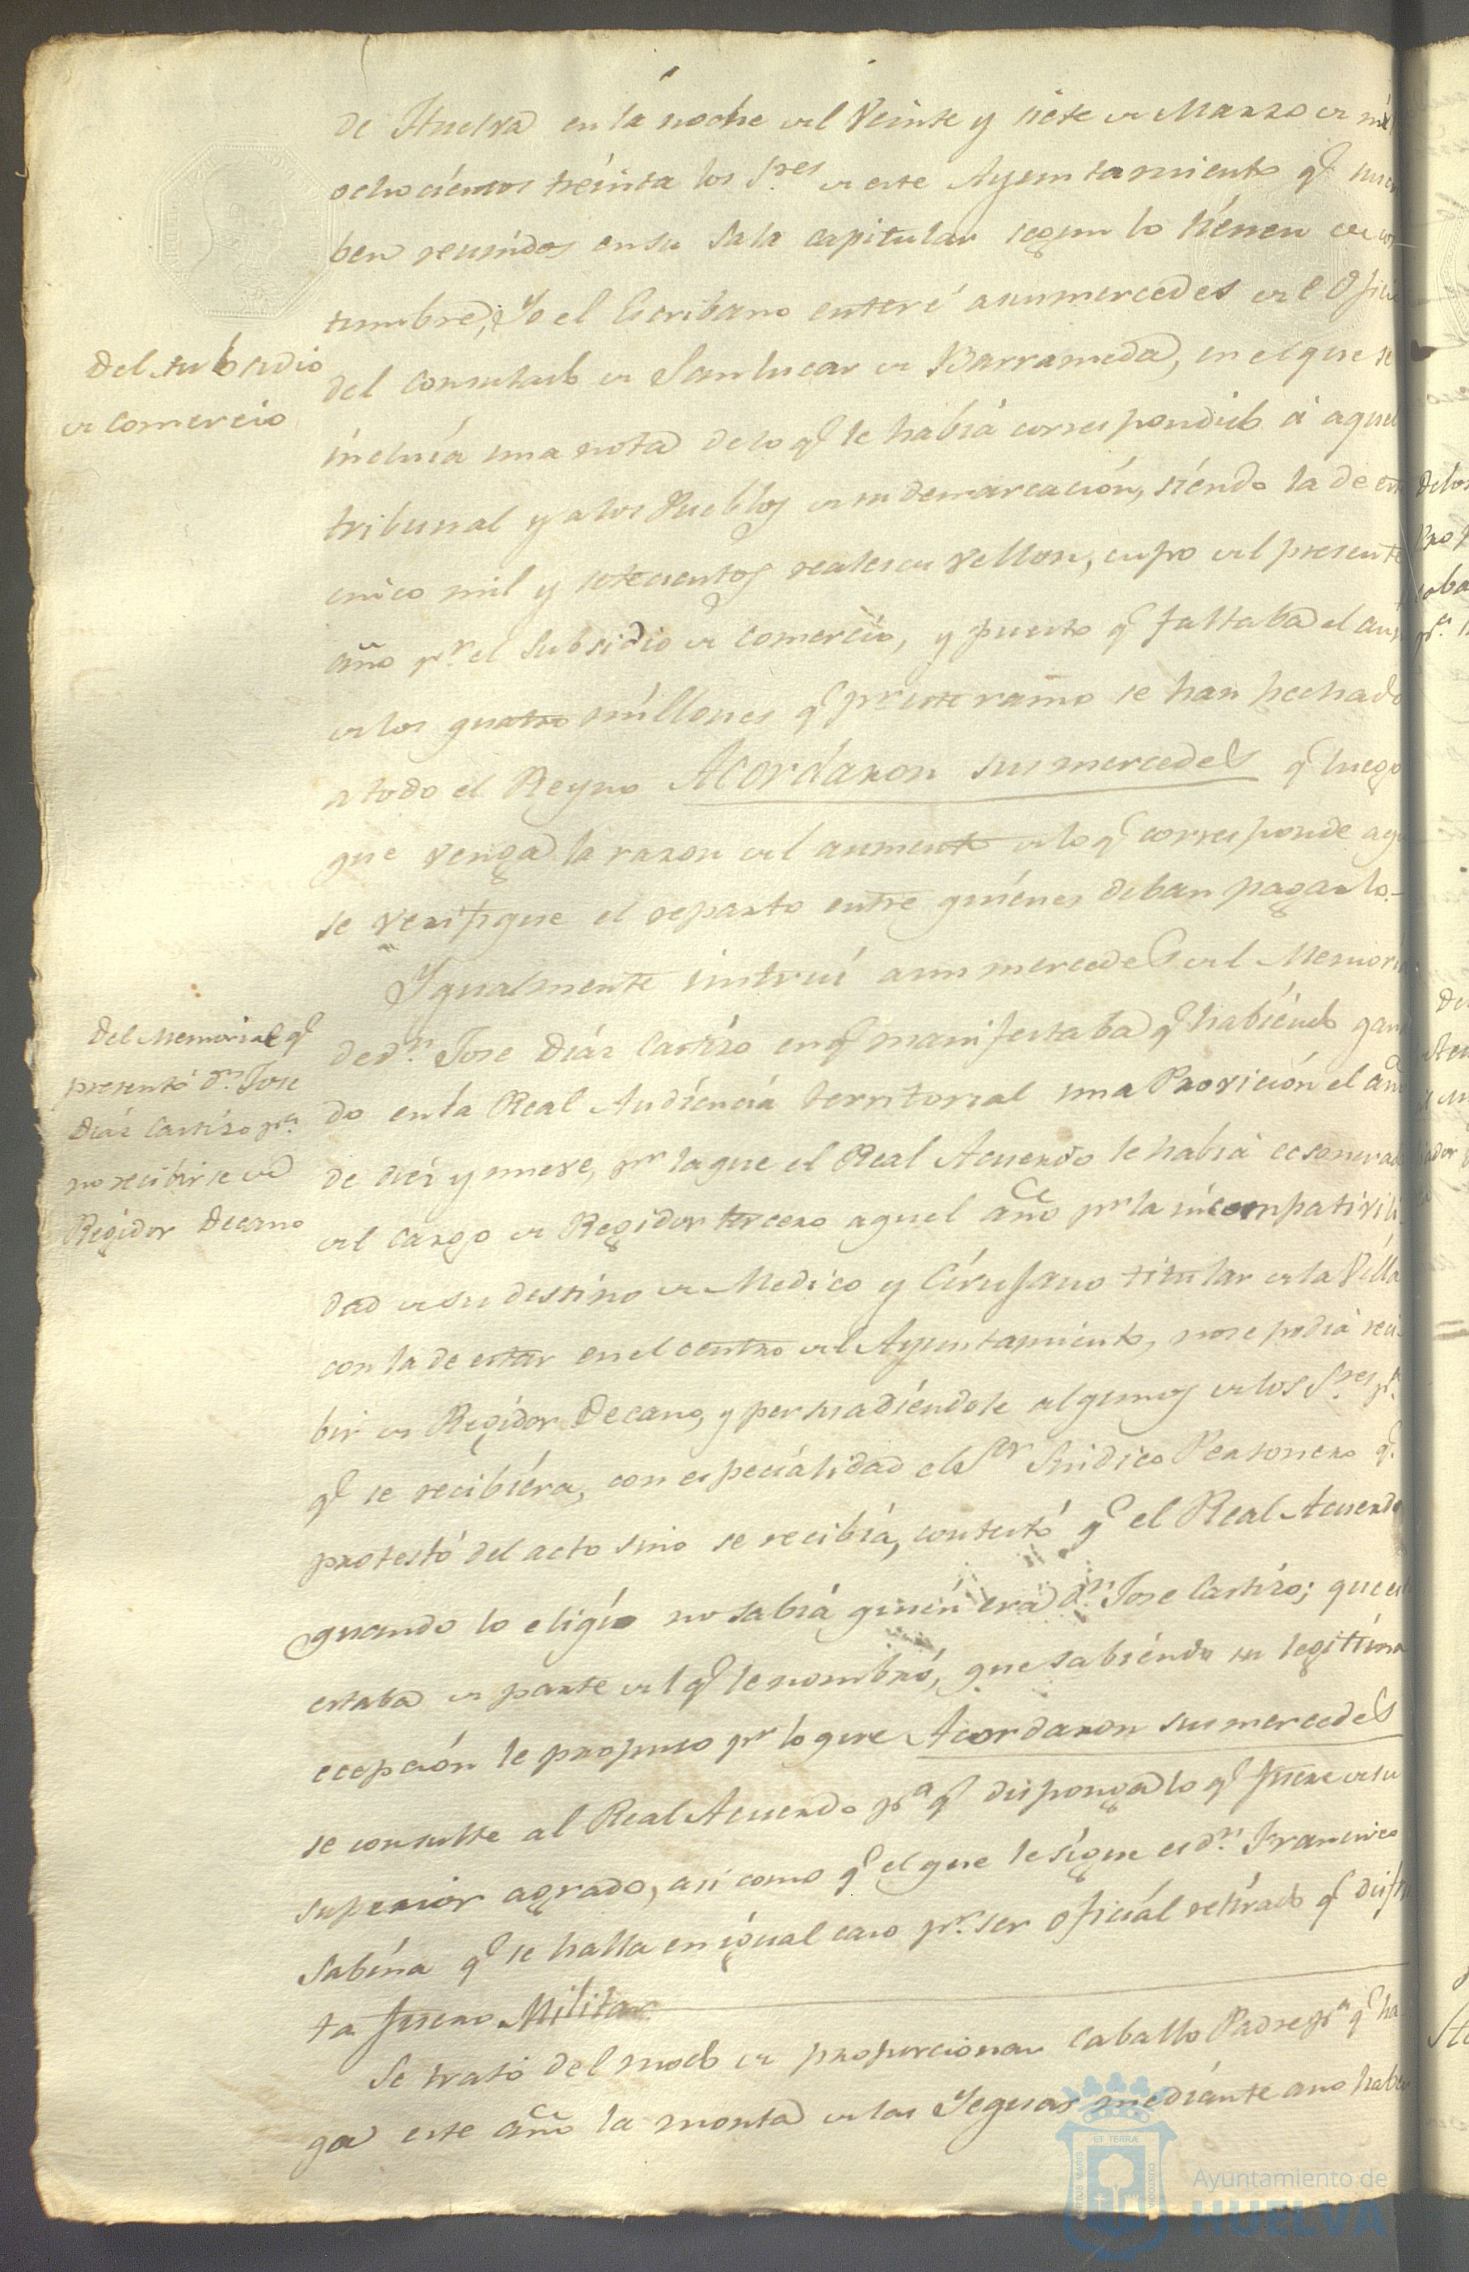 de Huelva en la noche del Veinte y siete de Marzo de mil
ochocientos treinta los S.res de este Ayuntamiento q.e suscri
ben reunidos en su Sala capitular segun lo tienen de cos-
tumbre, Yo el Escribano enteré a sus mercedes del Oficio
del Consulado de Sanlucar de Barrameda, en el que se
Del subsidio
de Comercio
incluía una nota de lo q.e le había correspondido á aquel
tribunal y a los Pueblos de su demarcación, siéndo la de esta
cinco mil y setecientos reales de vellon, cupo del presente
año p.r el Subsidio de Comercio, y puesto q.e faltaba el aum.
de los quatro millones q.e p.r este ramo se han hechado
a todo el Reyno Acordaron sus mercedes q.e luego
que venga la razon del aumento de lo q.e corresponde aqui
se verifique el reparto entre quiénes deban pagarlo.-
Ygualmente instruí a sus mercedes del Memorial
Del Memorial q.e
presentó d.n Jose
Diáz Castizo p.a
no recibirse de
Regidor Decano
de d.n Jose Diáz Castizo en q.e manifestaba q.e habiéndo gana
do en la Real Audiéncia territorial una Provición el año
de diéz y nueve, p.r la que el Real Acuerdo le había ecsonerado
del cargo de Regidor tercero aquel año p.r la incompativili-
dad de su destino de Medico y Cirujano titular de la Villa
con la de estar en el centro del Ayuntamiento, no se podía reci
bir de Regidor Decano, y persuadiéndole algunos de los S.res p.a
q.e se recibiéra, con especiálidad el S.or Sindico Personero q.e
protestó del acto sino se recibía, contestó q.e el Real Acuerdo
quando lo eligio no sabía quién era d.n Jose Castizo; que
estaba de parte del q.e le nombró, que sabiéndo su legitima
ecepción le propuso p.r lo que Acordaron sus mercedes
se consulte al Real Acuerdo p.a q.e disponga lo q.e fuere de su
superior agrado, asi como q.e el que le sigue es d.n Francisco
Sabína q.e se halla en igual caso p.r ser oficiál retirado q.e disfru
ta fuero Militar
Se trató del modo de proporcionar Caballo Padre p.a q.e ha
ga este año la monta de las Yeguas mediánte a no haber
ET TERRAE
Ayuntamiento de
HUELVA